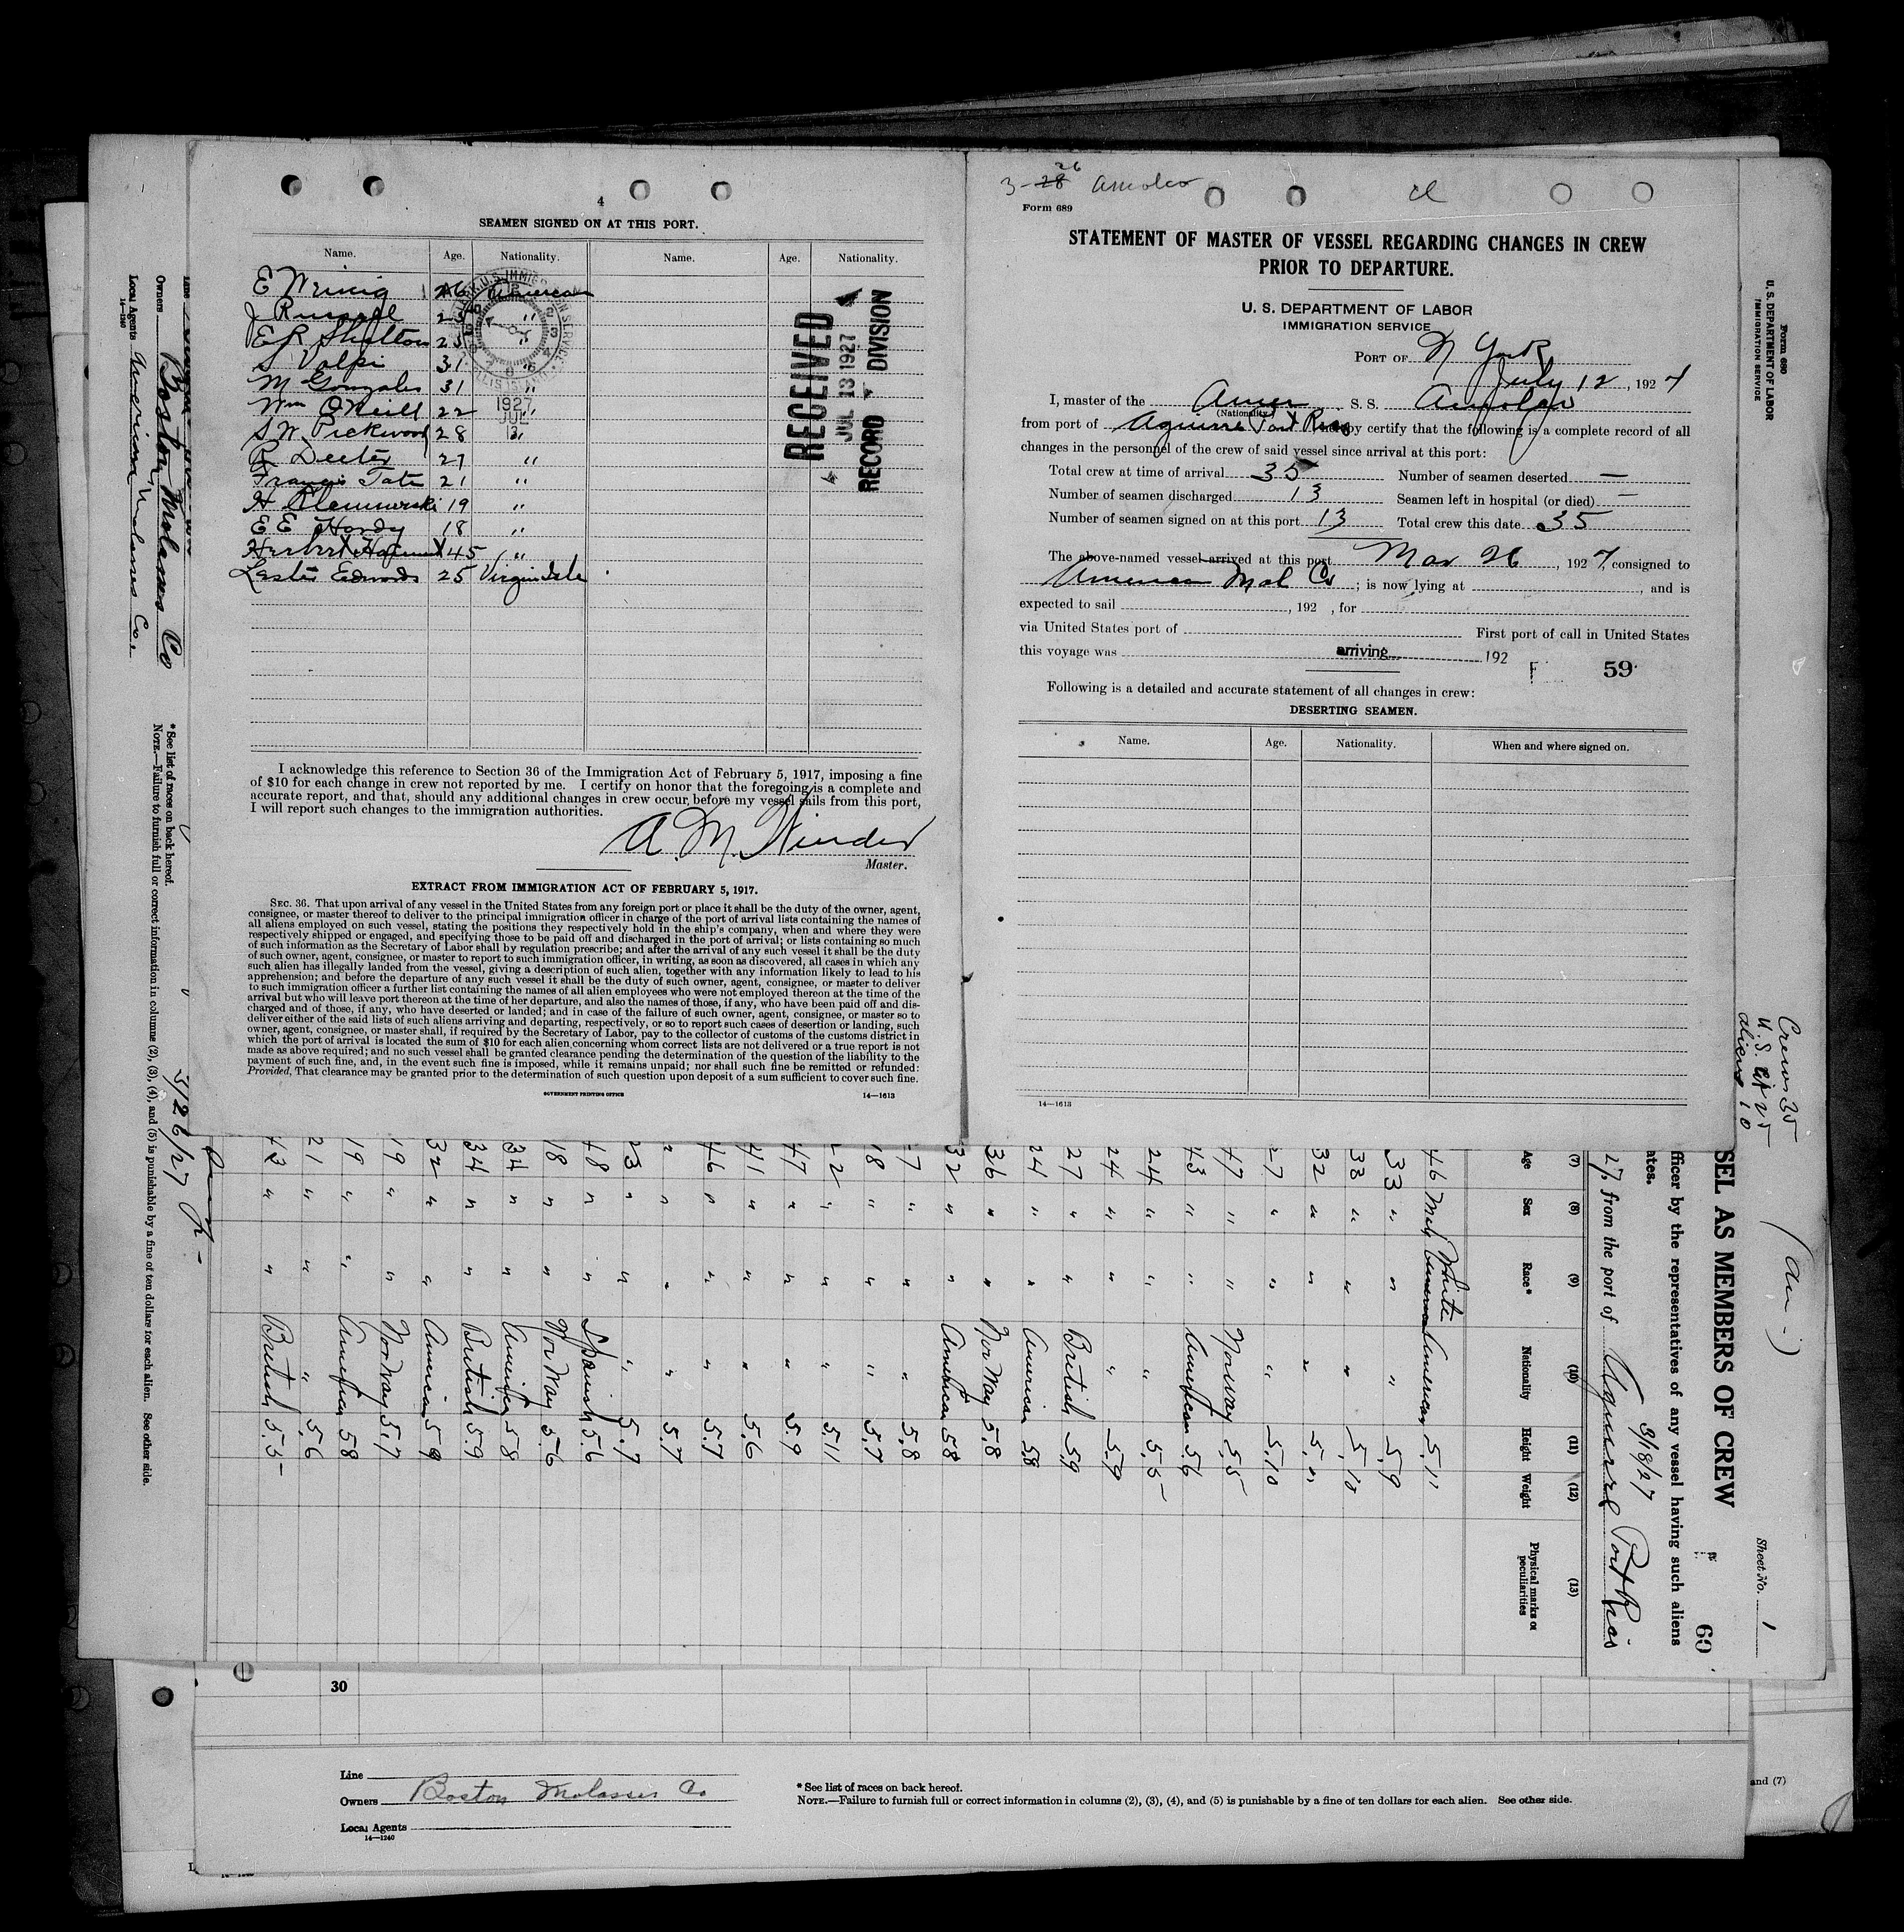 4
SEAMEN SIGNED ON AT THIS PORT.
Name. Age. Nationality. Name. Age. Nationality.
E 26 American
J Russell 25 "
E R Shelton 25 "
S Volpi 31 "
M Gonzales 31 "
Wm O'Neill 22 "
S. W. Pickwood 28 "
R Deeter 27 "
Francis Tate 21 "
H 19 "
E E Hardy 18 "
Herbert 45 "
Lester Edwards 25 Virgin Isle
U.S. IMMIGRATION SERVICE
ELLIS ISLAND
1927
JUL
13
RECEIVED
JUL 13 1927
RECORD DIVISION
I acknowledge this reference to Section 36 of the Immigration Act of February 5, 1917, imposing a fine
of $10 for each change in crew not reported by me. I certify on honor that the foregoing is a complete and
accurate report, and that, should any additional changes in crew occur before my vessel sails from this port,
I will report such changes to the immigration authorities.
A. M. Winder
Master.
EXTRACT FROM IMMIGRATION ACT OF FEBRUARY 5, 1917.
SEC. 36. That upon arrival of any vessel in the United States from any foreign port or place it shall be the duty of the owner, agent,
consignee, or master thereof to deliver to the principal immigration officer in charge of the port of arrival lists containing the names of
all aliens employed on such vessel, stating the positions they respectively hold in the ship's company, when and where they were
respectively shipped or engaged, and specifying those to be paid off and discharged in the port of arrival; or lists containing so much
of such information as the Secretary of Labor shall by regulation prescribe; and after the arrival of any such vessel it shall be the duty
of such owner, agent, consignee, or master to report to such immigration officer, in writing, as soon as discovered, all cases in which any
such alien has illegally landed from the vessel, giving a description of such alien, together with any information likely to lead to his
apprehension; and before the departure of any such vessel it shall be the duty of such owner, agent, consignee, or master to deliver
to such immigration officer a further list containing the names of all alien employees who were not employed thereon at the time of the
arrival but who will leave port thereon at the time of her departure, and also the names of those, if any, who have been paid off and dis-
charged and of those, if any, who have deserted or landed; and in case of the failure of such owner, agent, consignee, or master so to
deliver either of the said lists of such aliens arriving and departing, respectively, or so to report such cases of desertion or landing, such
owner, agent, consignee, or master shall, if required by the Secretary of Labor, pay to the collector of customs of the customs district in
which the port of arrival is located the sum of $10 for each alien concerning whom correct lists are not delivered or a true report is not
made as above required; and no such vessel shall be granted clearance pending the determination of the question of the liability to the
payment of such fine, and, in the event such fine is imposed, while it remains unpaid; nor shall such fine be remitted or refunded:
Provided, That clearance may be granted prior to the determination of such question upon deposit of a sum sufficient to cover such fine.
GOVERNMENT PRINTING OFFICE 14—1613
3-28 26 Amolco
Form 689
STATEMENT OF MASTER OF VESSEL REGARDING CHANGES IN CREW
PRIOR TO DEPARTURE.
U. S. DEPARTMENT OF LABOR
IMMIGRATION SERVICE
PORT OF N York
July 12, 1927
I, master of the Amer (Nationality) S. S. Amolco
from port of Aguirre Port Rico hereby certify that the following is a complete record of all
changes in the personnel of the crew of said vessel since arrival at this port:
Total crew at time of arrival 35 Number of seamen deserted —
Number of seamen discharged 13 Seamen left in hospital (or died) —
Number of seamen signed on at this port 13 Total crew this date 35
The above-named vessel arrived at this port Mar 26, 1927, consigned to
American Mol Co; is now lying at , and is
expected to sail , 192 , for
via United States port of First port of call in United States
this voyage was arriving 192
F 59
Following is a detailed and accurate statement of all changes in crew:
DESERTING SEAMEN.
Name. Age. Nationality. When and where signed on.
14—1613
Form 680
U. S. DEPARTMENT OF LABOR
IMMIGRATION SERVICE
Crew 35
U.S. 25
Aliens 10
Sheet No. 1
SEL AS MEMBERS OF CREW
60
fficer by the representatives of any vessel having such aliens
ates.
3/18/27
27, from the port of Aguirre Port Rico
(7) (8) (9) (10) (11) (12) (13)
Age Sex Race* Nationality Height Weight Physical marks or peculiarities
46 Male White American 5.11
33 " " " 5.9
33 " " " 5.10
32 " " "
27 " " " 5.10
47 " " Norway 5.5
43 " " American 5.6
24 " " " 5.5
24 " " " 5.9
27 " " British 5.9
24 " " American 58
36 " " Norway 5.8
32 " " American 58
7 " " " 5.8
18 " " " 5.7
22 " " " 5.11
47 " " " 5.9
41 " " " 5.6
46 " " " 5.7
" " " 5.7
23 " " " 5.7
48 " " Spanish 5.6
18 " " Norway 5.6
34 " " American 58
34 " " British 5.9
32 " " American 59
19 " " Norway 5.7
19 " " American 58
21 " " " 5.6
43 " " British 5.5
3/26/27
* See list of races on back hereof.
NOTE.—Failure to furnish full or correct information in columns (2), (3), (4), and (5) is punishable by a fine of ten dollars for each alien. See other side.
Line
Owners Boston Molasses Co
Local Agents American Molasses Co.
14—1240
30
Line
Owners Boston Molasses Co
Local Agents
14—1240
* See list of races on back hereof.
NOTE.—Failure to furnish full or correct information in columns (2), (3), (4), and (5) is punishable by a fine of ten dollars for each alien. See other side.
and (7)